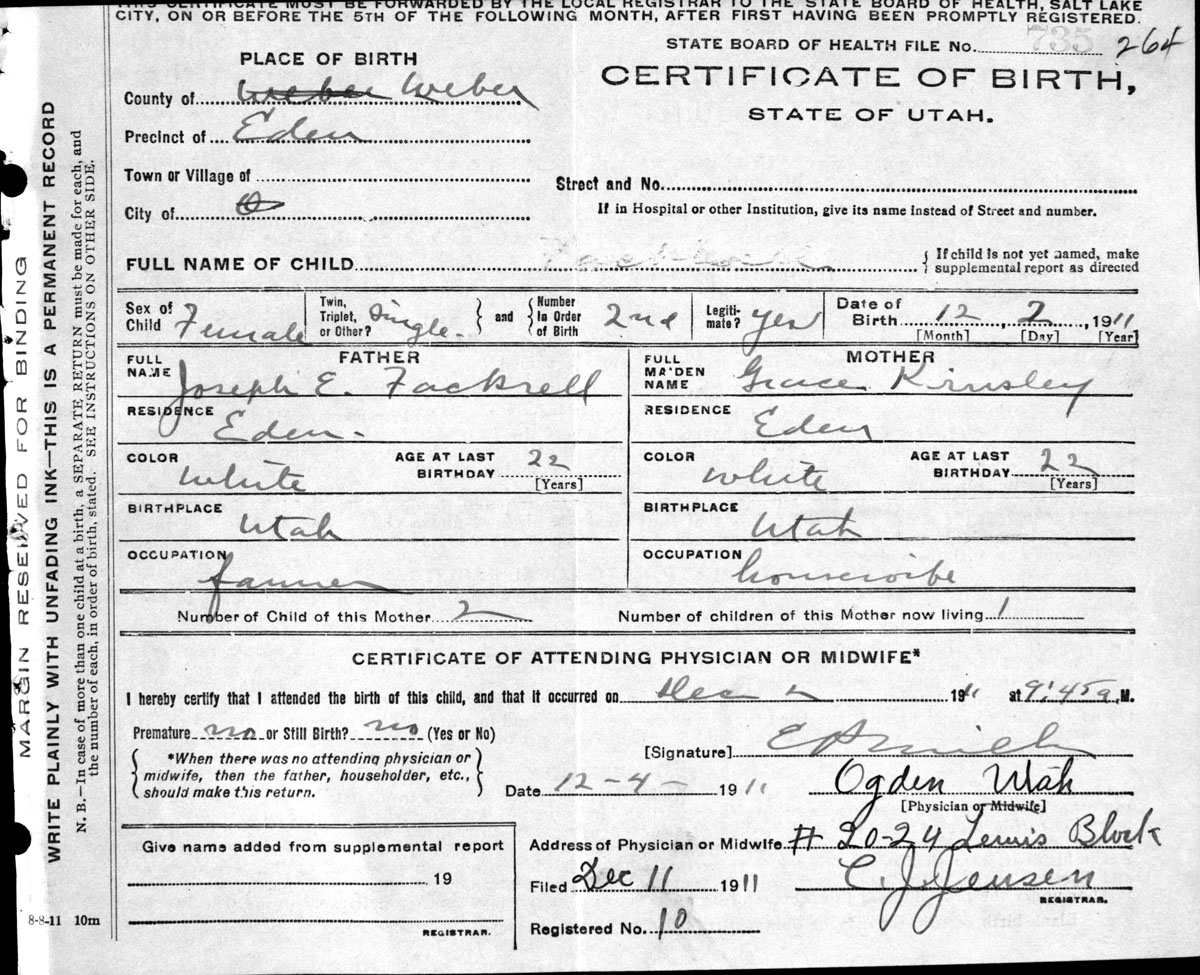 THIS CERTIFICATE MUST BE FORWARDED BY THE LOCAL REGISTRAR TO THE STATE BOARD OF HEALTH, SALT LAKE
CITY, ON OR BEFORE THE 5TH OF THE FOLLOWING MONTH, AFTER FIRST HAVING BEEN PROMPTLY REGISTERED.
STATE BOARD OF HEALTH FILE No. 735 264
PLACE OF BIRTH
CERTIFICATE OF BIRTH,
STATE OF UTAH.
County of Weber Weber
Precinct of Eden
Town or Village of
Street and No.
City of
If in Hospital or other Institution, give its name instead of Street and number.
FULL NAME OF CHILD Fackrell { If child is not yet named, make
supplemental report as directed
Sex of Child Female
Twin, Triplet, or Other? Single. } and { Number In Order of Birth 2nd
Legiti-mate? yes
Date of Birth 12, 2, 1911
[Month] [Day] [Year]
FATHER
FULL NAME Joseph E. Fackrell
RESIDENCE Eden.
COLOR White
AGE AT LAST BIRTHDAY 22
[Years]
BIRTHPLACE Utah
OCCUPATION farmer
MOTHER
FULL MA'DEN NAME Grace Kinsley
RESIDENCE Eden
COLOR White
AGE AT LAST BIRTHDAY 22
[Years]
BIRTHPLACE Utah
OCCUPATION housewife
Number of Child of this Mother 2
Number of children of this Mother now living 1
CERTIFICATE OF ATTENDING PHYSICIAN OR MIDWIFE*
I hereby certify that I attended the birth of this child, and that it occurred on Dec 2 1911 at 9:45 a. M.
Premature no or Still Birth? no (Yes or No)
{ *When there was no attending physician or
midwife, then the father, householder, etc.,
should make this return. }
[Signature]
Date 12-4- 1911 Ogden Utah
[Physician or Midwife]
Address of Physician or Midwife # 20-24 Lewis Block
Filed Dec 11 1911 C. J. Jensen
REGISTRAR.
Registered No. 10
Give name added from supplemental report
19
REGISTRAR.
8-8-11 10m
MARGIN RESERVED FOR BINDING
WRITE PLAINLY WITH UNFADING INK—THIS IS A PERMANENT RECORD
N. B.—In case of more than one child at a birth, a SEPARATE RETURN must be made for each, and
the number of each, in order of birth, stated. SEE INSTRUCTIONS ON OTHER SIDE.